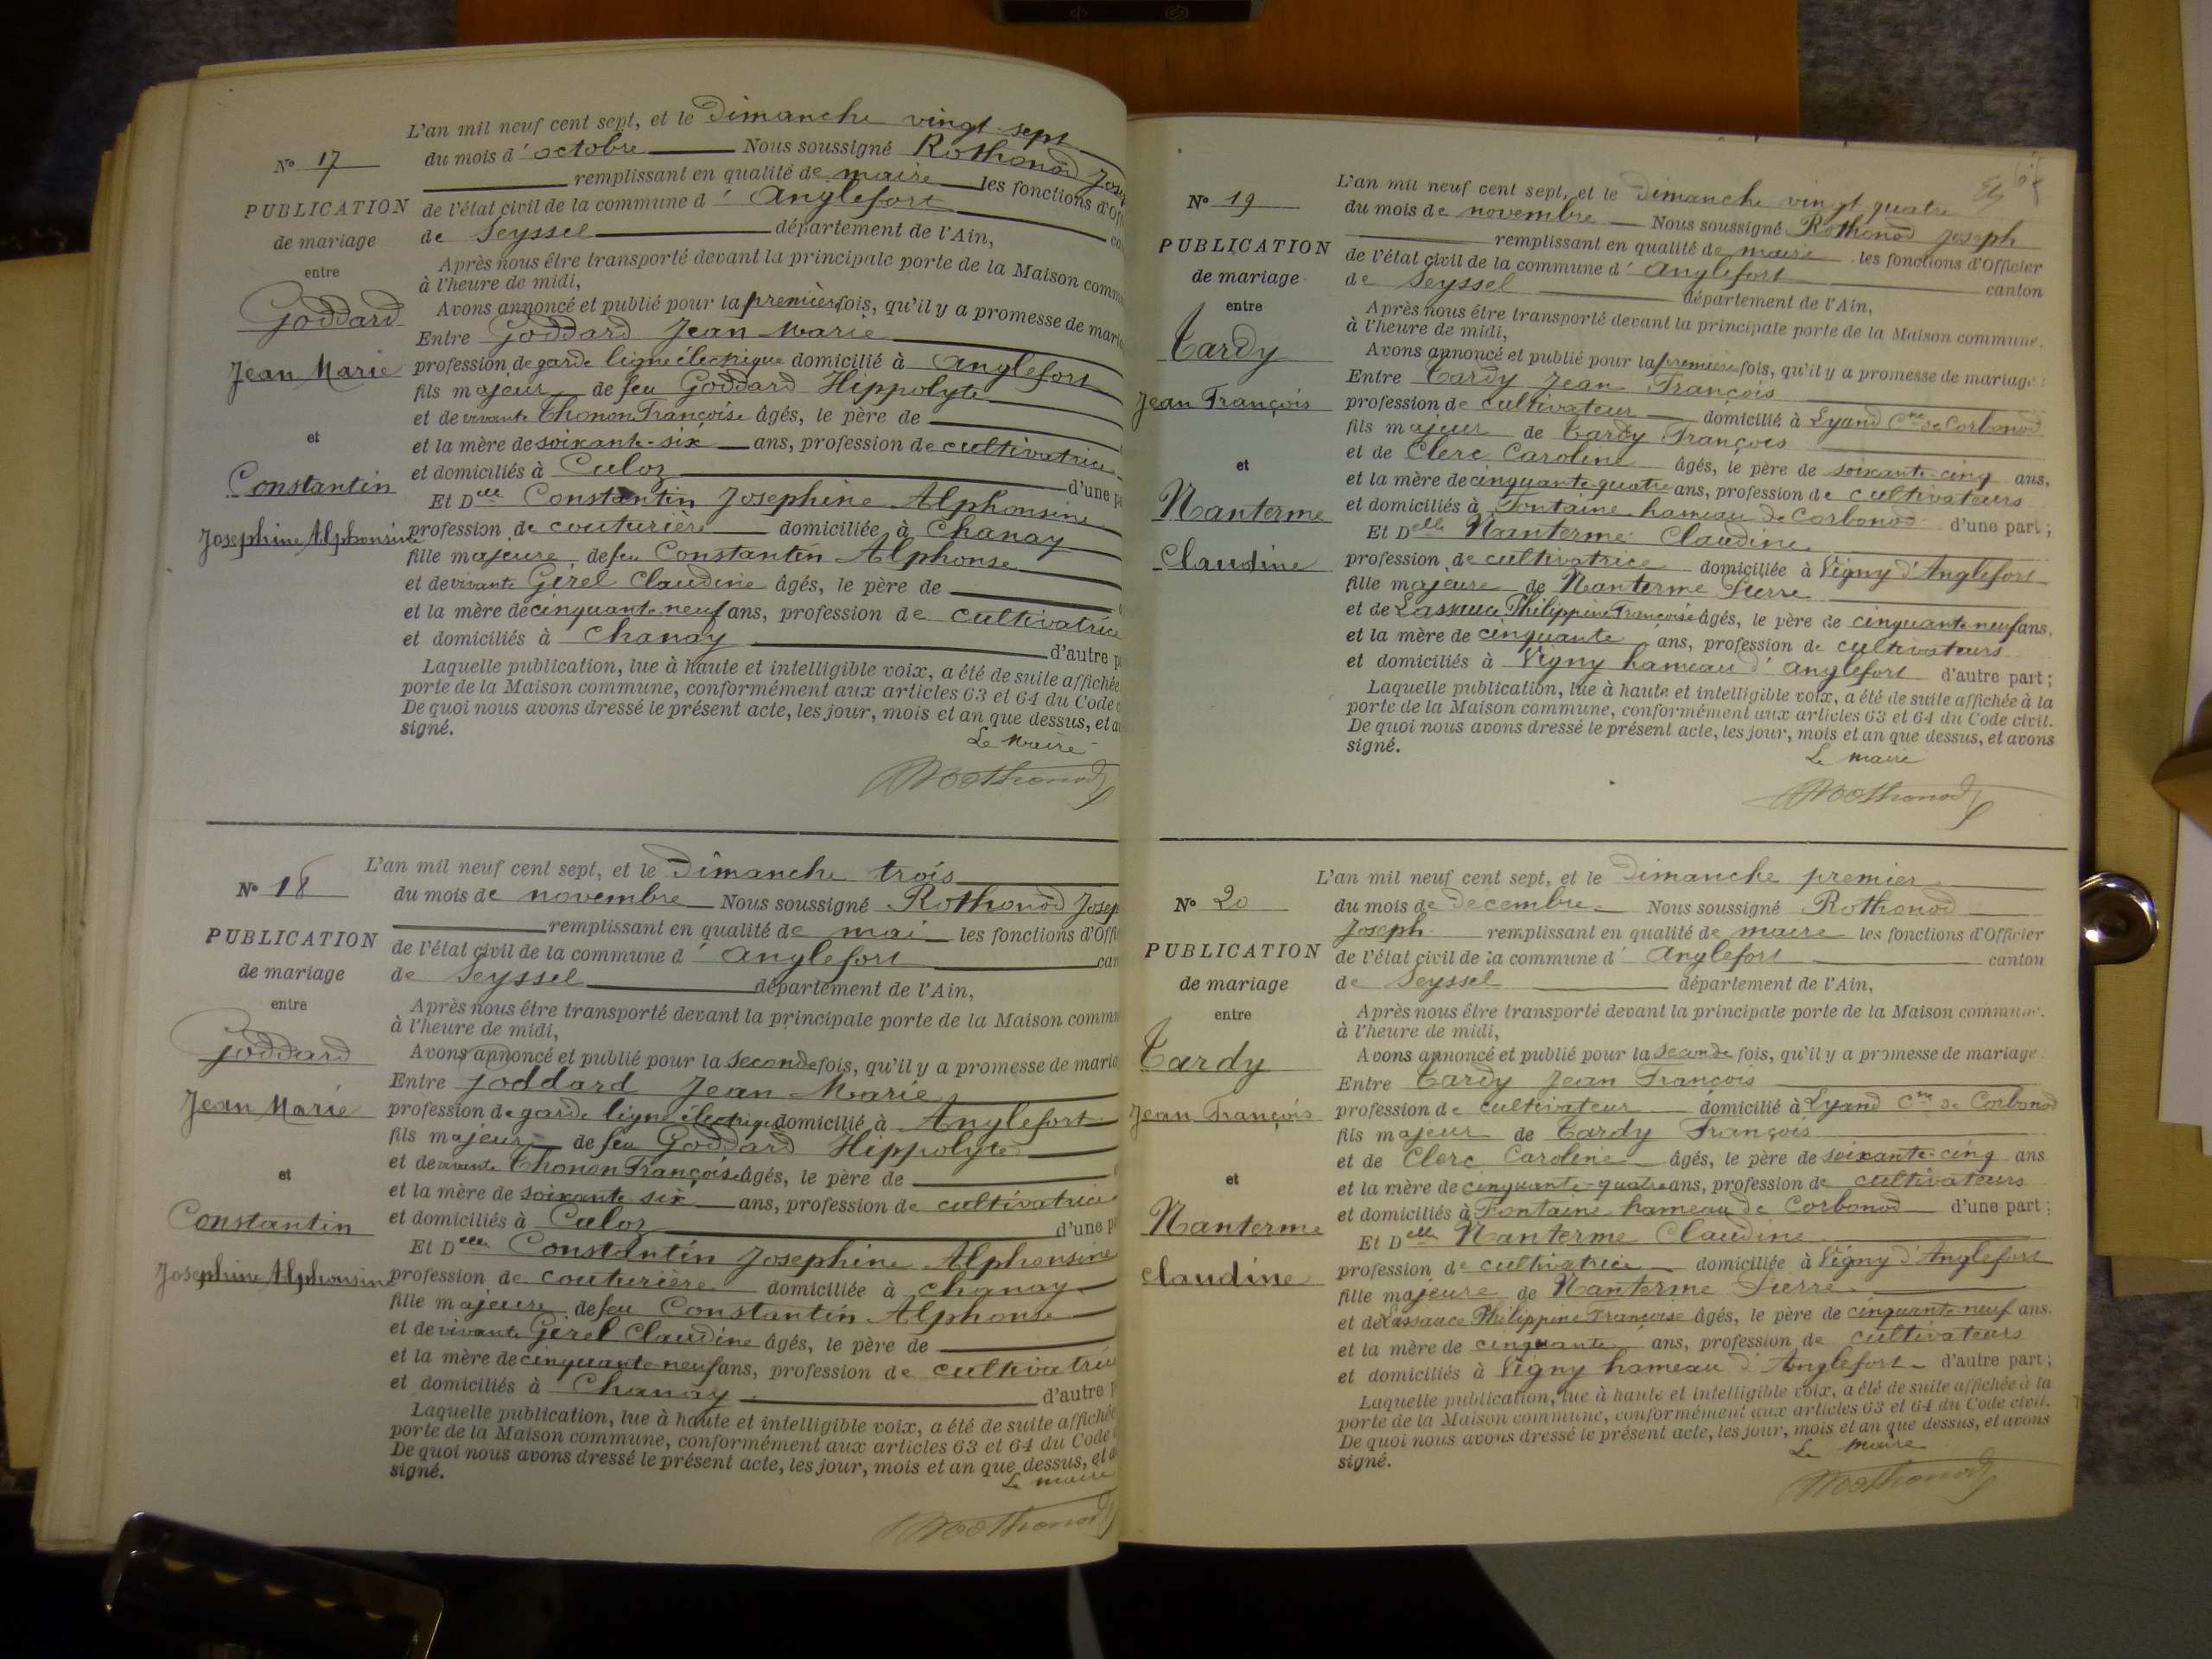 L'an mil neuf cent sept, et le Dimanche vingt-sept
Nº 17
du mois d'octobre Nous soussigné Rothonod Jose
remplissant en qualité de maire les fonctions d'Off
PUBLICATION
de l'état civil de la commune d'Anglefort
de mariage
de Seyssel département de l'Ain,
entre
Après nous être transporté devant la principale porte de la Maison comm
à l'heure de midi,
Goddard
Avons annoncé et publié pour la première fois, qu'il y a promesse de mari
Entre Goddard Jean Marie
Jean Marie
profession de garde ligne électrique domicilié à Anglefort
fils majeur de feu Goddard Hippolyte
et de vivante Thonon Françoise âgés, le père de
et
et la mère de soixante-six ans, profession de cultivatrice
et domiciliés à Culoz d'une p
Constantin
Et Delle Constantin Josephine Alphonsine
Josephine Alphonsine
profession de couturière domiciliée à Chanay
fille majeure de feu Constantin Alphonse
et de vivante Girel Claudine âgés, le père de
et la mère de cinquante-neuf ans, profession de cultivatrice
et domiciliés à Chanay d'autre p
Laquelle publication, lue à haute et intelligible voix, a été de suite affichée
porte de la Maison commune, conformément aux articles 63 et 64 du Code
De quoi nous avons dressé le présent acte, les jour, mois et an que dessus, et a
signé.
Le Maire
Rothonod
L'an mil neuf cent sept, et le Dimanche trois
Nº 18
du mois de novembre Nous soussigné Rothonod Josep
remplissant en qualité de mai les fonctions d'Offi
PUBLICATION
de l'état civil de la commune d'Anglefort can
de mariage
de Seyssel département de l'Ain,
entre
Après nous être transporté devant la principale porte de la Maison comm
à l'heure de midi,
Goddard
Avons annoncé et publié pour la seconde fois, qu'il y a promesse de maria
Entre Goddard Jean Marie
Jean Marie
profession de garde ligne électrique domicilié à Anglefort
fils majeur de feu Goddard Hippolyte
et de vivante Thonon Françoise âgés, le père de
et
et la mère de soixante six ans, profession de cultivatrice
et domiciliés à Culoz d'une p
Constantin
Et Delle Constantin Josephine Alphonsine
Josephine Alphonsine
profession de couturière domiciliée à Chanay
fille majeure de feu Constantin Alphonse
et de vivante Girel Claudine âgés, le père de
et la mère de cinquante-neuf ans, profession de cultivatrice
et domiciliés à Chanay d'autre p
Laquelle publication, lue à haute et intelligible voix, a été de suite affichée
porte de la Maison commune, conformément aux articles 63 et 64 du Code
De quoi nous avons dressé le présent acte, les jour, mois et an que dessus, et a
signé.
Le maire
Rothonod
L'an mil neuf cent sept, et le Dimanche vingt quatre
Nº 19
du mois de novembre Nous soussigné Rothonod Joseph
remplissant en qualité de maire les fonctions d'Officier
PUBLICATION
de l'état civil de la commune d'Anglefort canton
de mariage
de Seyssel département de l'Ain,
entre
Après nous être transporté devant la principale porte de la Maison commune.
à l'heure de midi,
Tardy
Avons annoncé et publié pour la première fois, qu'il y a promesse de mariage:
Entre Tardy Jean François
Jean François
profession de cultivateur domicilié à Lyand Cne de Corbonod
fils majeur de Tardy François
et de Clerc Caroline âgés, le père de soixante-cinq ans,
et
et la mère de cinquante-quatre ans, profession de cultivateurs
et domiciliés à Fontaine hameau de Corbonod d'une part;
Nanterme
Et Delle Nanterme Claudine
Claudine
profession de cultivatrice domiciliée à Vigny d'Anglefort
fille majeure de Nanterme Pierre
et de Lassauce Philippine Françoise âgés, le père de cinquante neuf ans,
et la mère de cinquante ans, profession de cultivateurs
et domiciliés à Vigny hameau d'Anglefort d'autre part;
Laquelle publication, lue à haute et intelligible voix, a été de suite affichée à la
porte de la Maison commune, conformément aux articles 63 et 64 du Code civil.
De quoi nous avons dressé le présent acte, les jour, mois et an que dessus, et avons
signé.
Le maire
Rothonod
L'an mil neuf cent sept, et le Dimanche premier
Nº 20
du mois de Decembre Nous soussigné Rothonod
Joseph remplissant en qualité de maire les fonctions d'Officier
PUBLICATION
de l'état civil de la commune d'Anglefort canton
de mariage
de Seyssel département de l'Ain,
entre
Après nous être transporté devant la principale porte de la Maison commune.
à l'heure de midi,
Tardy
Avons annoncé et publié pour la seconde fois, qu'il y a promesse de mariage
Entre Tardy Jean François
Jean François
profession de cultivateur domicilié à Lyand Cne de Corbonod
fils majeur de Tardy François
et de Clerc Caroline âgés, le père de soixante-cinq ans
et
et la mère de cinquante-quatre ans, profession de cultivateurs
et domiciliés à Fontaine hameau de Corbonod d'une part;
Nanterme
Et Delle Nanterme Claudine
Claudine
profession de cultivatrice domiciliée à Vigny d'Anglefort
fille majeure de Nanterme Pierre
et de Lassauce Philippine Françoise âgés, le père de cinquante-neuf ans.
et la mère de cinquante ans, profession de cultivateurs
et domiciliés à Vigny hameau d'Anglefort d'autre part;
Laquelle publication, lue à haute et intelligible voix, a été de suite affichée à la
porte de la Maison commune, conformément aux articles 63 et 64 du Code civil.
De quoi nous avons dressé le présent acte, les jour, mois et an que dessus, et avons
signé.
Le maire
Rothonod